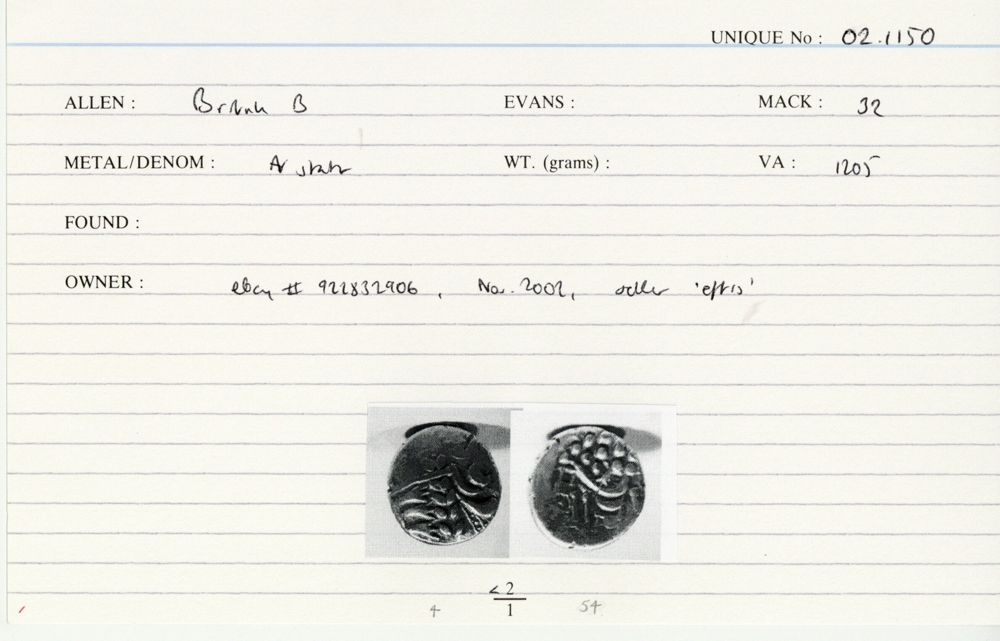 UNIQUE No : 02.1150
ALLEN : British B EVANS : MACK : 32
METAL/DENOM : AV stater WT. (grams) : VA : 1205
FOUND :
OWNER : ebay # 922832906, Nov. 2002, seller
< 2
4 1 54